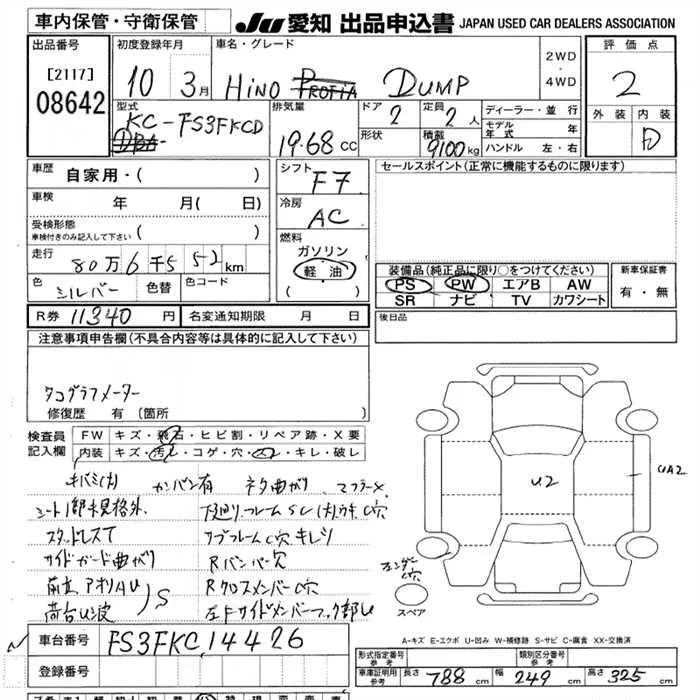 車内保管・守衛保管
JU 愛知 出品申込書 JAPAN USED CAR DEALERS ASSOCIATION
出品番号
[2117]
08642
初度登録年月
10 3月
車名・グレード
HINO PROFIA DUMP
2WD
・
4WD
評価点
2
外装 内装
D
型式
KC-FS3FKCD
排気量
19.68 CC
ドア
2
定員
2 人
形状
積載
9100 kg
ディーラー・並行
モデル年式 年
ハンドル 左・右
車歴
自家用・( )
車検
年 月( 日)
受検形態
車検付きのみ記入して下さい ( )
走行
80万6千552 km
色
シルバー
色替
色コード
R券 11340 円
名変通知期限 月 日
シフト
F7
冷房
AC
燃料
ガソリン
軽油
( )
セールスポイント(正常に機能するものに限ります)
装備品(純正品に限り○をつけてください)
PS PW エアB AW
SR ナビ TV カワシート
新車保証書
有・無
後日品
注意事項申告欄(不具合内容等は具体的に記入して下さい)
タコグラフメーター
修復歴 有 (箇所 )
検査員
記入欄
FW キズ・飛石・ヒビ割・リペア跡・X要
内装 キズ・汚レ・コゲ・穴・凹・キレ・破レ
キバミ(大) カンバン有 ネタ曲がり マフラーX
シート1部未規格外
スタッドレスT
サイドガード曲がり
Rバンパー穴
RクロスメンバーC穴
荷台U波
S
U2
UA2
フェンダーC穴
スペア
A-キズ E-エクボ U-凹み W-補修跡 S-サビ C-腐食 XX-交換済
車台番号 FS3FKC 14426
登録番号
形式指定番号
参考
類別区分番号
参考
車庫証明用
参考
長さ 788 cm 幅 249 cm 高さ 325 cm